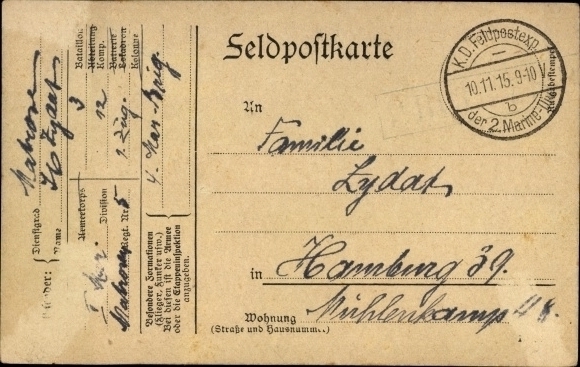 Feldpostkarte
K.D. Feldpostexp.
10.11.15. 9-10 V
b
der 2. Marine-Div.
An
Familie
Lydat
in Hamburg 39.
Mühlenkamp 48.
Wohnung
(Straße und Hausnummer)
Dienstgrad Matrose
Name Lydat
Armeekorps
Division
Matrosen Regt. Nr. 5
Bataillon 3
Abteilung
Komp. 12
Batterie
Eskadron 1. Zug.
Kolonne
4. Mar-Brig.
Besondere Formationen
(Flieger, Funker usw.)
Bei diesen ist die Armee
oder die Etappeninspektion
anzugeben.